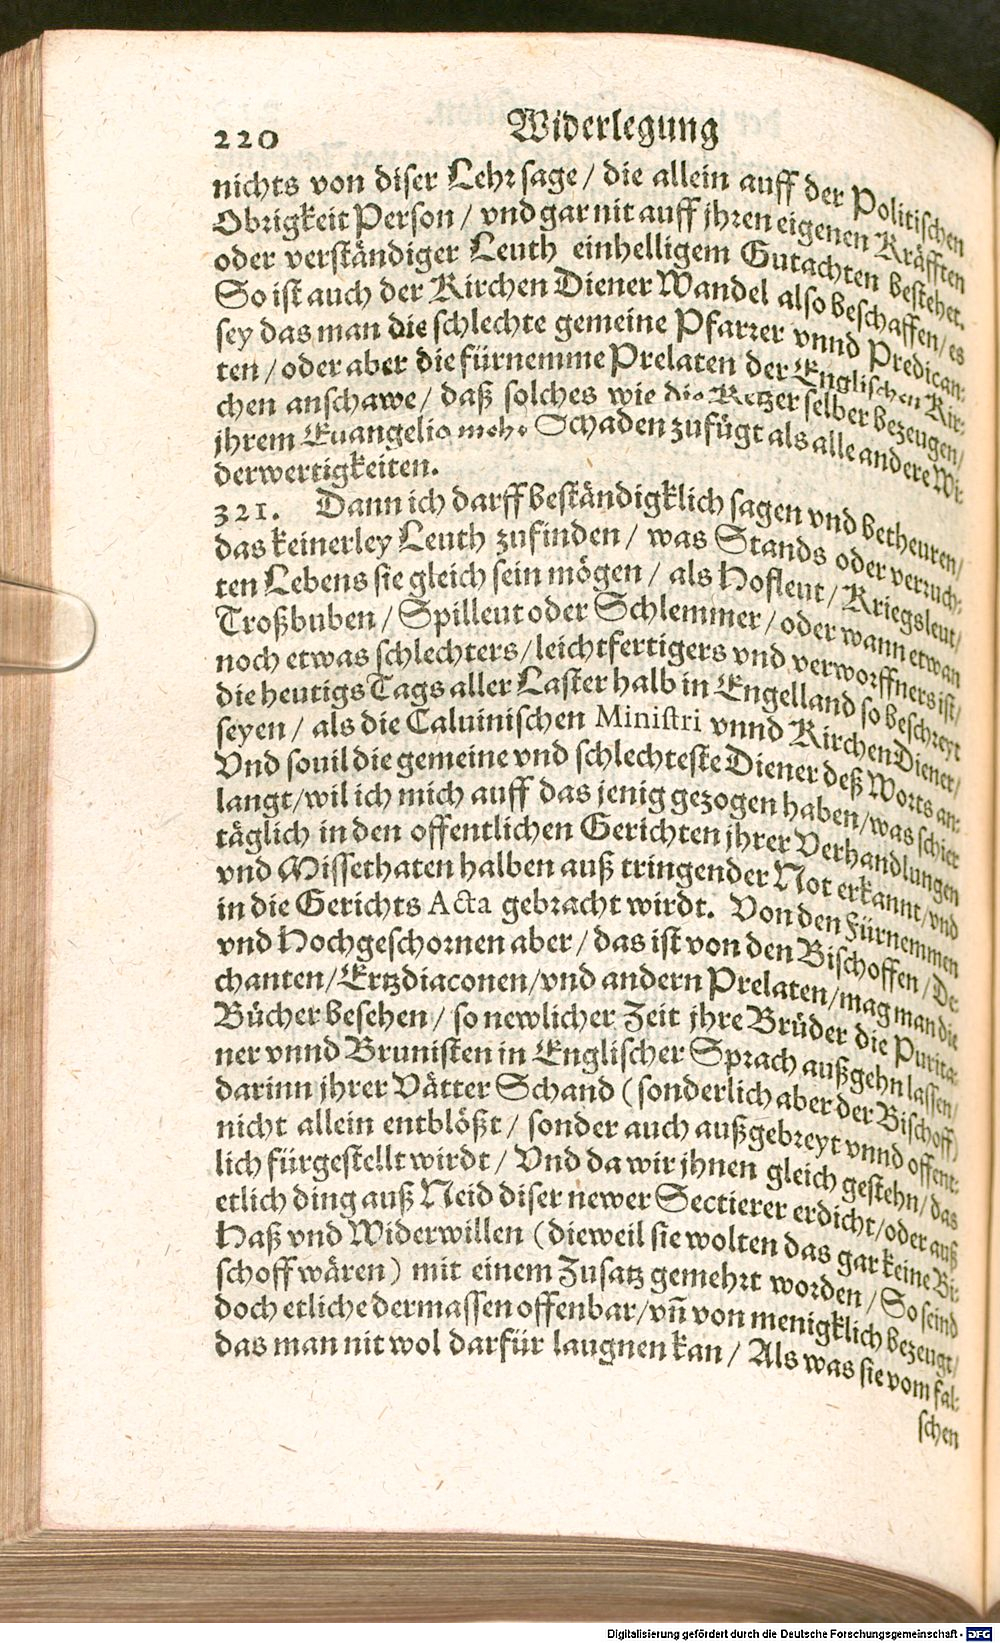 220 Widerlegung
nichts von diser Lehr sage / die allein auff der Politischen
Obrigkeit Person / vnd gar nit auff jhren eigenen Kräfften
oder verständiger Leuth einhelligem Gutachten bestehet.
So ist auch der Kirchen Diener Wandel also beschaffen / es
sey das man die schlechte gemeine Pfarrer vnnd Predican-
ten / oder aber die fürnemme Prelaten der Englischen Kir-
chen anschawe / daß solches wie die Ketzer selber bezeugen /
jhrem Euangelio mehr Schaden zufügt als alle andere Wi-
derwertigkeiten.
321. Dann ich darff beständigklich sagen vnd betheuren /
das keinerley Leuth zufinden / was Stands oder verruch-
ten Lebens sie gleich sein mögen / als Hofleut / Kriegsleut /
Troßbuben / Spilleut oder Schlemmer / oder wann etwan
noch etwas schlechters / leichtfertigers vnd verworffners ist /
die heutigs Tags aller Laster halb in Engelland so beschreyt
seyen / als die Caluinischen Ministri vnnd Kirchen Diener /
Vnd souil die gemeine vnd schlechteste Diener deß Worts an-
langt / wil ich mich auff das jenig gezogen haben / was schier
täglich in den offentlichen Gerichten jhrer Verhandlungen
vnd Missethaten halben auß tringender Not erkannt / vnd
in die Gerichts Acta gebracht wirdt. Von den Fürnemmen
vnd Hochgeschornen aber / das ist von den Bischoffen / De-
chanten / Ertzdiaconen / vnd andern Prelaten / mag man die
Bücher besehen / so newlicher Zeit jhre Brüder die Purita-
ner vnnd Brunisten in Englischer Sprach außgehn lassen /
darinn jhrer Vätter Schand (sonderlich aber der Bischoff)
nicht allein entblößt / sonder auch außgebreyt vnnd offent-
lich fürgestellt wirdt / Vnd da wir jhnen gleich gestehn / das
etlich ding auß Neid diser newer Sectierer erdicht / oder auß
Haß vnd Widerwillen (dieweil sie wolten das gar keine Bi-
schoff wären) mit einem Zusatz gemehrt worden / So seind
doch etliche dermassen offenbar / vñ von menigklich bezeugt /
das man nit wol darfür laugnen kan / Als was sie vom fal-
schen
Digitalisierung gefördert durch die Deutsche Forschungsgemeinschaft - DFG